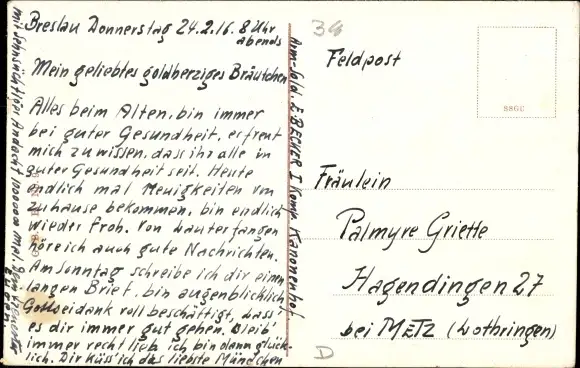 Breslau Donnerstag 24.2.16. 8 Uhr
abends
Mein geliebtes goldherziges Bräutchen
Alles beim Alten, bin immer
bei guter Gesundheit, erfreut
mich zu wissen, dass ihr alle in
guter Gesundheit seit. Heute
endlich mal Neuigkeiten von
zuhause bekommen, bin endlich
wieder froh. Von Lauterfangen
höre ich auch gute Nachrichten.
Am Sonntag schreibe ich dir einen
langen Brief, bin augenblicklich
Gottseidank voll beschäftigt, lass
es dir immer gut gehen. Bleib'
immer recht lieb ich bin dann glück-
lich. Dir küss' ich das liebste Mündchen
mit sehnsüchtiger Andacht 1000000 mal. Dein
Eugen.
Arm-Sold. E. BECKER I Komp. Kanonenhof
34
Feldpost
SSGC
Fräulein
Palmyre Griette
Hagendingen 27
bei METZ (Lothringen)
D